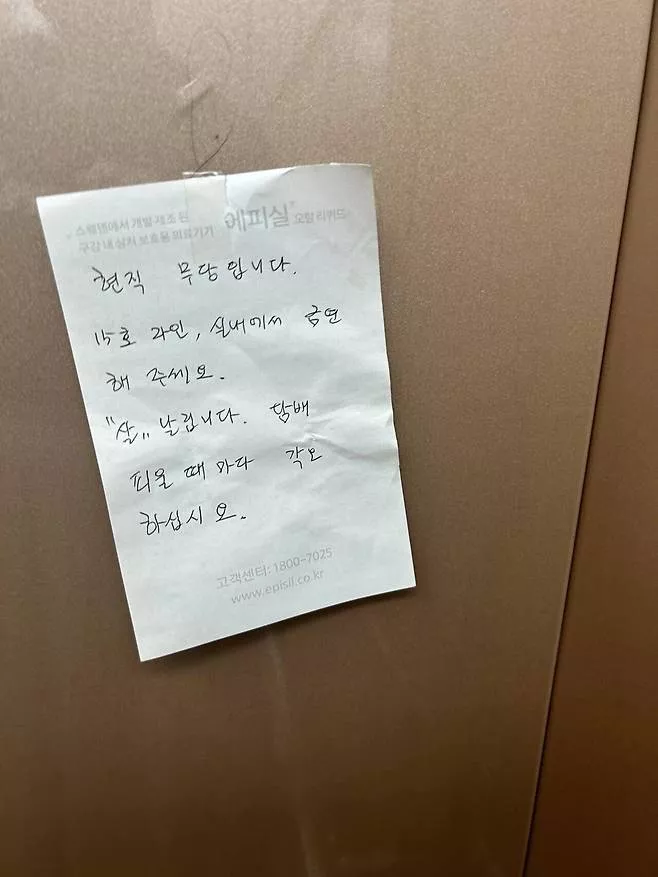 스웨덴에서 개발·제조 된
구강 내 상처 보호용 의료기기 에피실® 오랄 리퀴드
현직 무당입니다.
15호 라인, 실내에서 금연
해 주세요.
"살" 날립니다. 담배
피울 때 마다 각오
하십시오.
고객센터: 1800-7025
www.episil.co.kr